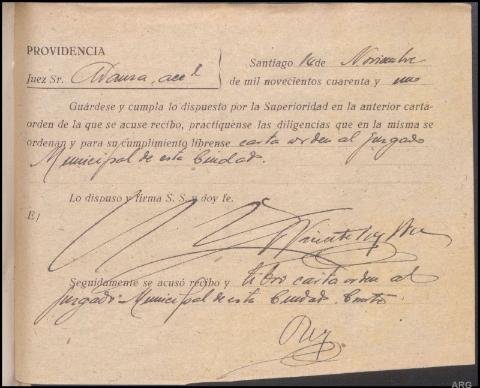 PROVIDENCIA
Juez Sr.
Santiago 14 de Noviembre
de mil novecientos cuarenta y uno
Guárdese y cumpla lo dispuesto por la Superioridad en la anterior carta-
orden de la que se acuse recibo, practíquense las diligencias que en la misma se
ordenan y para su cumplimiento líbrense carta orden al Juzgado
Municipal de esta Ciudad.
Lo dispuso y firma S. S. y doy fe.
E/
Vicente Rey
Seguidamente se acusó recibo y libro carta orden al
Juzgado Municipal de esta Ciudad.
Rey
ARG